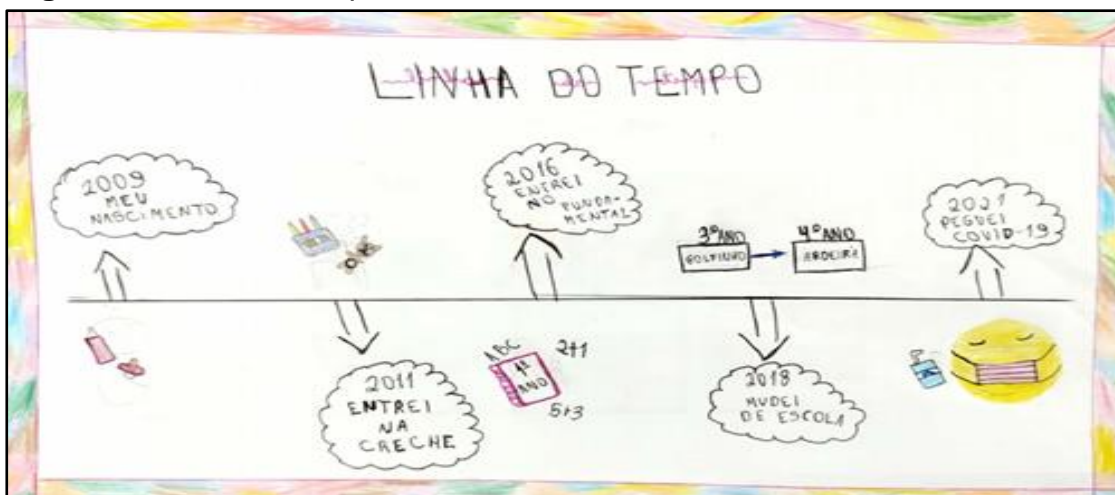 LINHA DO TEMPO
2009
MEU
NASCIMENTO
2011
ENTREI
NA
CRECHE
2016
ENTREI
NO FUNDA-
MENTAL
ABC
1º
ANO
2+1
5+3
3º ANO
GOLFINHO
4º ANO
2018
MUDEI
DE ESCOLA
2021
PEGUEI
COVID-19